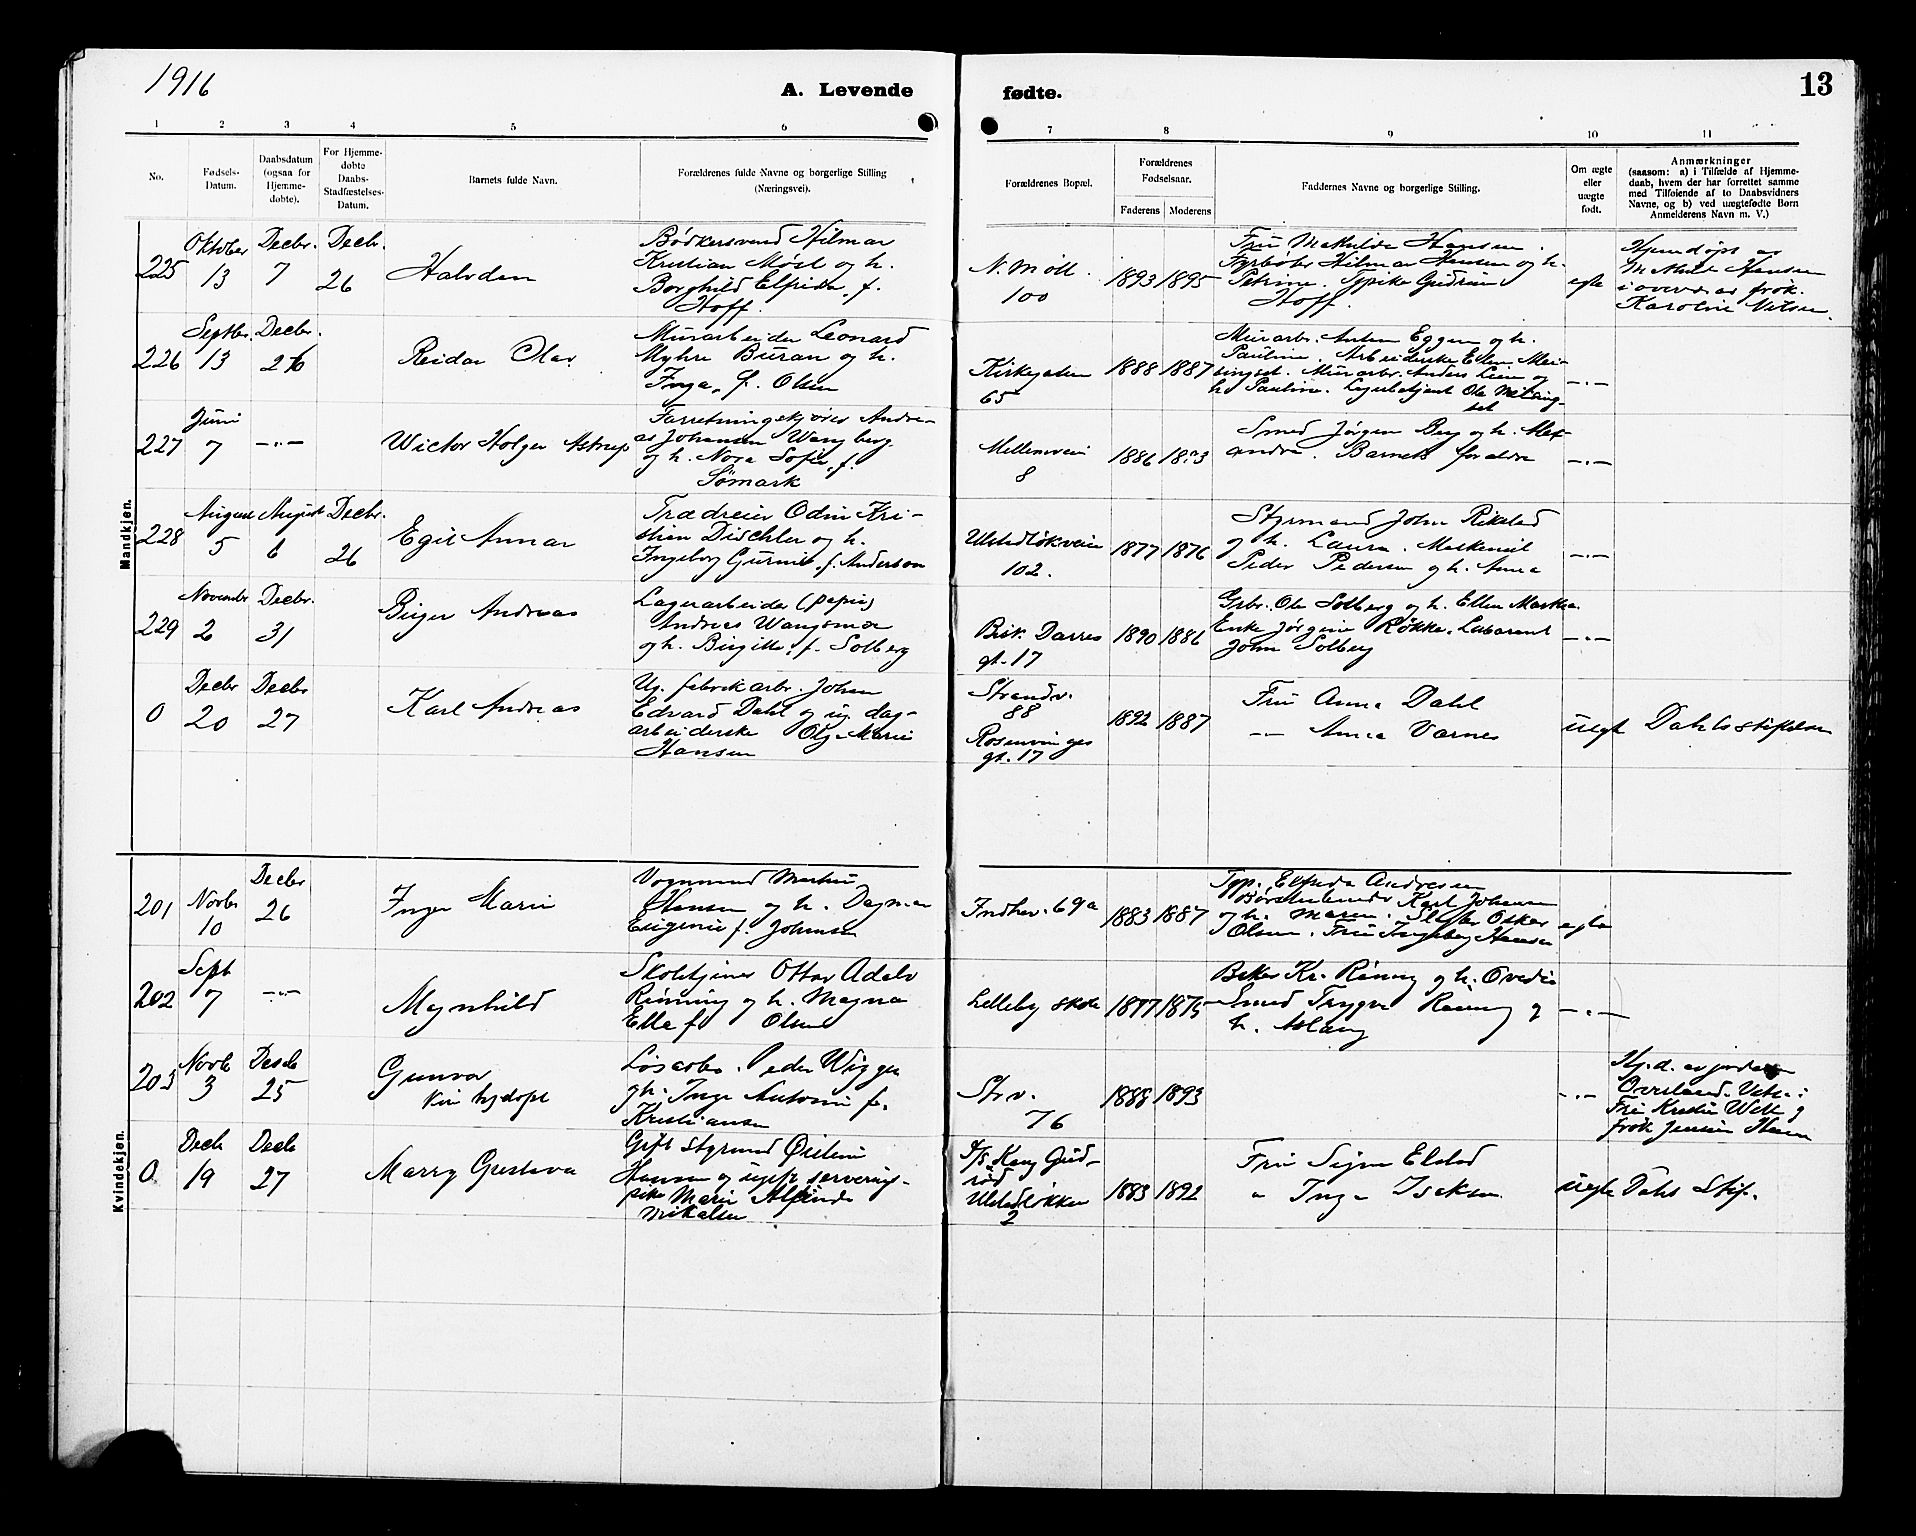 1916
A. Levende fødte.
13
1 2 3 4 5 6 7 8 9 10 11
No.
Fødsels-
Datum.
Daabsdatum
(ogsaa for
Hjemme-
døbte).
For Hjemme-
døbte
Daabs-
Stadfæstelses-
Datum.
Barnets fulde Navn.
Forældrenes fulde Navne og borgerlige Stilling
(Næringsvei).
Forældrenes Bopæl.
Forældrenes
Fødselsaar.
Faderens Moderens
Faddernes Navne og borgerlige Stilling.
Om ægte
eller
uægte
født.
Anmærkninger
(saasom: a) i Tilfælde af Hjemme-
daab, hvem der har forrettet samme
med Tilføiende af to Daabsvidners
Navne, og b) ved uægtefødte Børn
Anmelderens Navn m. V.)
Mandkjøn.
225
Oktober
13
Decbr.
7
Decb.
26
Halvdan
Bødkersvend Hilmar
Kristian Møst og h.
Borghild Elfrida, f.
Hoff.
N. Møll.
100
1893 1895
Fru Mathilde Hansen.
Fyrbøter Hilmar Hansen og h.
Petrine. Typike Gudrun
Hoff.
egte
Hjemdøpt av
Hansen
i overv. av frøk.
Karoline Nilsen.
226
Septbr.
13
Decbr.
26
Reidar Olav.
Murarbeider Leonard
Myhre Buran og h.
Inga, f. Olsen
Kirkegaten
65
1888 1887
Murarb. Anton Eggen og h.
Pauline. Arbeiderske Ellen Mel-
singset. Murarb. Anders Lien og
h. Pauline. Ole Melsing-
set
-"-
227
Juni
7
-"-
Wictor Holger Astrup
Forretningskjører Andre-
as Johansen Wangberg
og h. Nora Sofie, f.
Sømark
Mellemveien
8
1886
Smed Jørgen Berg og h. Alex-
andra. Barnets foreldre
-"-
228
August
5
August
6
Decbr.
26
Egil Annar
Trædreier Odin Kri-
stian Dischler og h.
Ingeborg, f. Anderson
Ulstadløkveien
102.
1877 1876
Styrmand John Rikstad
og h. Laura.
Peder Pedersen og h. Anna
-"-
229
Novembr
2
Decbr.
31
Birger Andreas
Lagerarbeider (papir)
Andreas Wangsmo
og h. Birgitte, f. Solberg
Bisk. Darres
gt. 17
1890 1886
Grbr. Ole Solberg og h. Ellen Martha.
Enke Jørgine Røkke. Laborant
John Solberg
-"-
0
Decbr
20
Decbr
27
Karl Andreas
Ug. fabrikarb. Johan
Edvard Dahl og ug. dag-
arbeiderske Olg. Marie
Hansen
Strandv.
88
Rosenvinges
gt. 17
1892 1887
Fru Anna Dahl
-"- Anna Varnes
uegt
Dahls stiftelse
Kvindekjøn.
201
Novbr
10
Decbr
26
Inger Marie
Vognmand Martin
Hansen og h. Dagmar
Eugenie f. Johnsen
Indhev. 69a
1883 1887
Typ. Elfrida Andresen
Karl Johansen
og h. Maren. Oskar
Olsen. Fru Ingeborg Hansen
egte
202
Sept
7
-"-
Mynhild
Skoletjener Ottar Adolv
Rønning og h. Magna
Ella f. Olsen
Lilleby skole
1877 1875
Baker Kr. Rønning og h. Ovedia
Smed Trygve Rønning og
h. Aslaug
-"-
203
Novb
3
Deseb
25
Gunvor
Kun hj.døpt
Løsarb. Peder Wiggen
og h. Inga Antonie f.
Kristiansen
Strv.
76
1888 1893
-"-
Hj.d. av jordm
Overland. Vitn:
Fru Kristin Wett og
frøk Jensine
0
Decb
19
Decb
27
Marry Gustava
Gift Styrmand Øistein
Hansen og ugift serverings-
pike Marie Alfinda
Mikalsen
S/S Kong Gud-
rød
Ulstadløkken
2
1883 1892
Fru Signe Elstad
" Inga Isaksen
uegte
Dahls Stif.